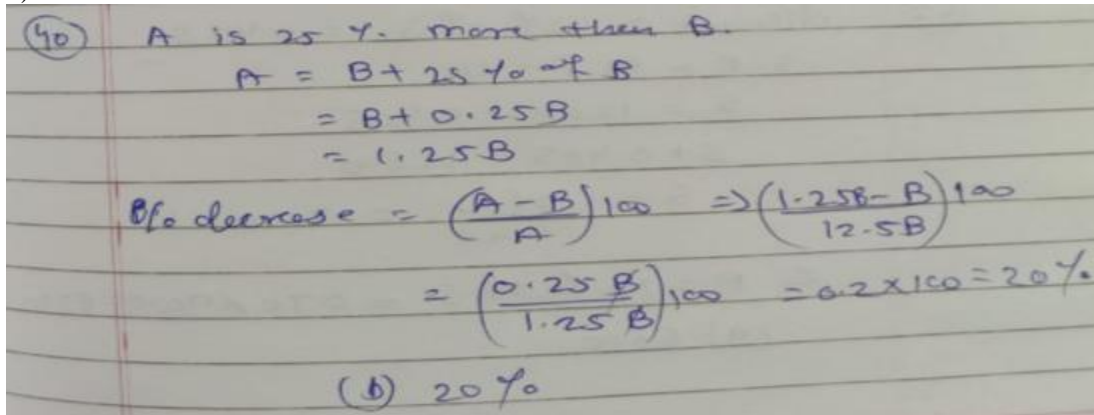 40 A is 25 %. more then B.
A = B + 25 % of B
= B + 0.25B
= 1.25B
% decrease = (A - B / A) 100 => (1.25B - B / 12.5B) 100
= (0.25 B / 1.25 B) 100 = 0.2 x 100 = 20%.
(b) 20%